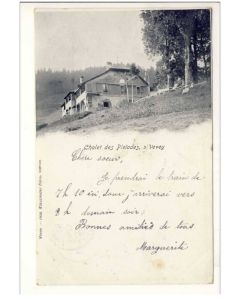 Chalet des Pleiades, s/Vevey
Chère soeur,
Je prendrai le train de
7 h 10 ici, donc j'arriverai vers
8 h demain soir;
Bonnes amitiés de tous
Marguerite